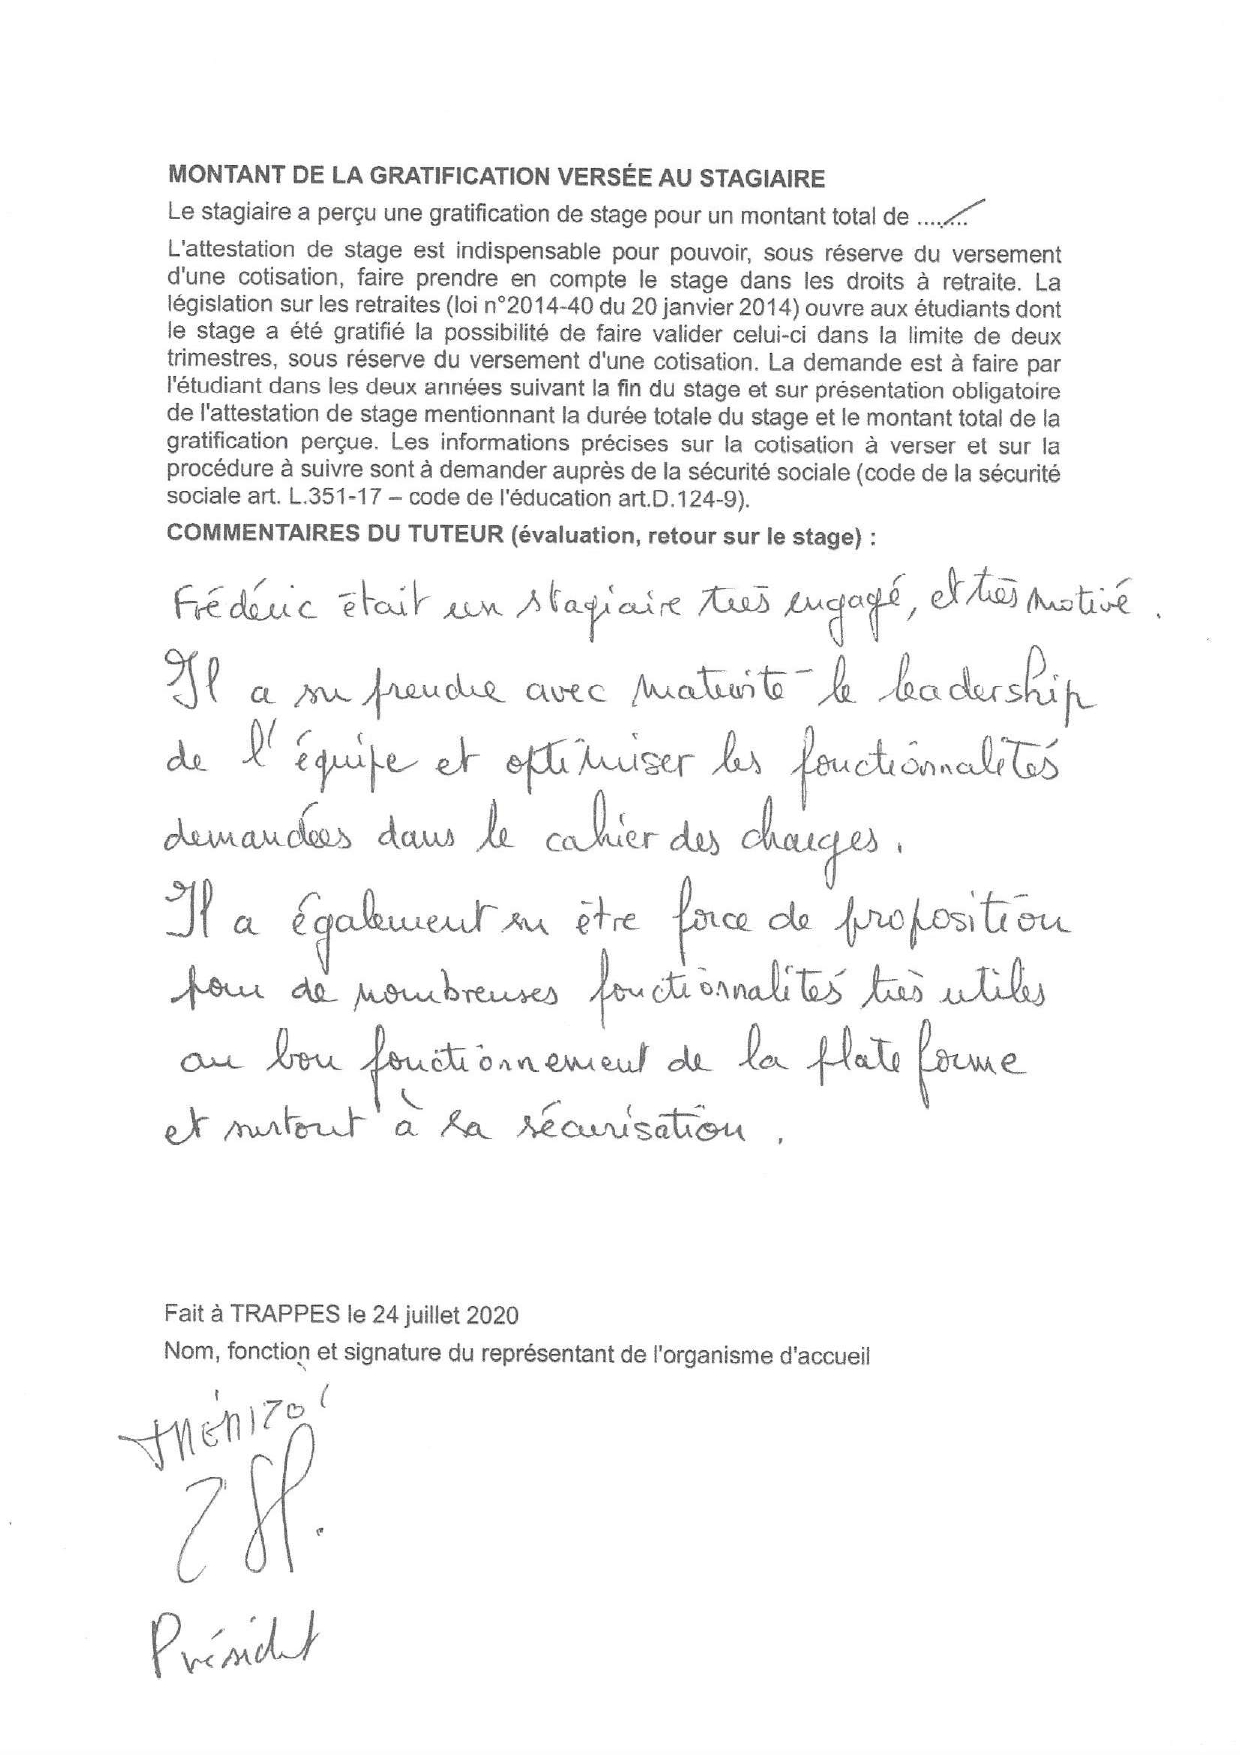 MONTANT DE LA GRATIFICATION VERSÉE AU STAGIAIRE
Le stagiaire a perçu une gratification de stage pour un montant total de ........
L'attestation de stage est indispensable pour pouvoir, sous réserve du versement
d'une cotisation, faire prendre en compte le stage dans les droits à retraite. La
législation sur les retraites (loi n°2014-40 du 20 janvier 2014) ouvre aux étudiants dont
le stage a été gratifié la possibilité de faire valider celui-ci dans la limite de deux
trimestres, sous réserve du versement d'une cotisation. La demande est à faire par
l'étudiant dans les deux années suivant la fin du stage et sur présentation obligatoire
de l'attestation de stage mentionnant la durée totale du stage et le montant total de la
gratification perçue. Les informations précises sur la cotisation à verser et sur la
procédure à suivre sont à demander auprès de la sécurité sociale (code de la sécurité
sociale art. L.351-17 – code de l'éducation art.D.124-9).
COMMENTAIRES DU TUTEUR (évaluation, retour sur le stage) :
Frédéric était un stagiaire très engagé, et très motivé.
Il a su prendre avec maturité le leadership
de l'équipe et optimiser les fonctionnalités
demandées dans le cahier des charges.
Il a également su être force de proposition
pour de nombreuses fonctionnalités très utiles
au bon fonctionnement de la plate forme
et surtout à sa sécurisation.
Fait à TRAPPES le 24 juillet 2020
Nom, fonction et signature du représentant de l'organisme d'accueil
Président